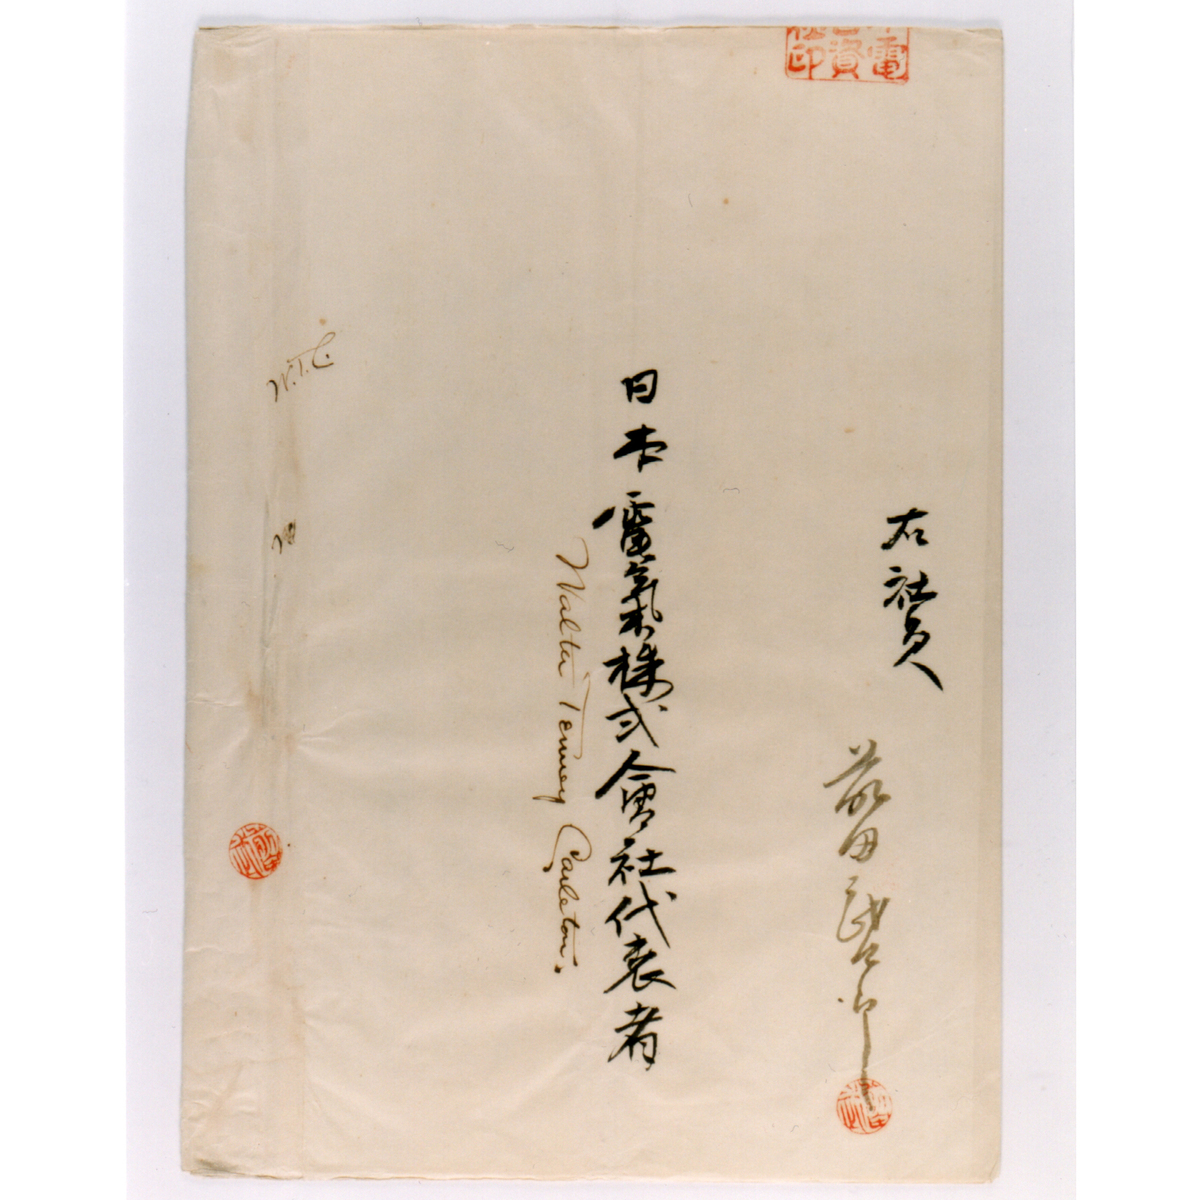 右社員
前田武四郎
日本電氣株式會社代表者
Walter Tenney Carleton.
W.T.C.